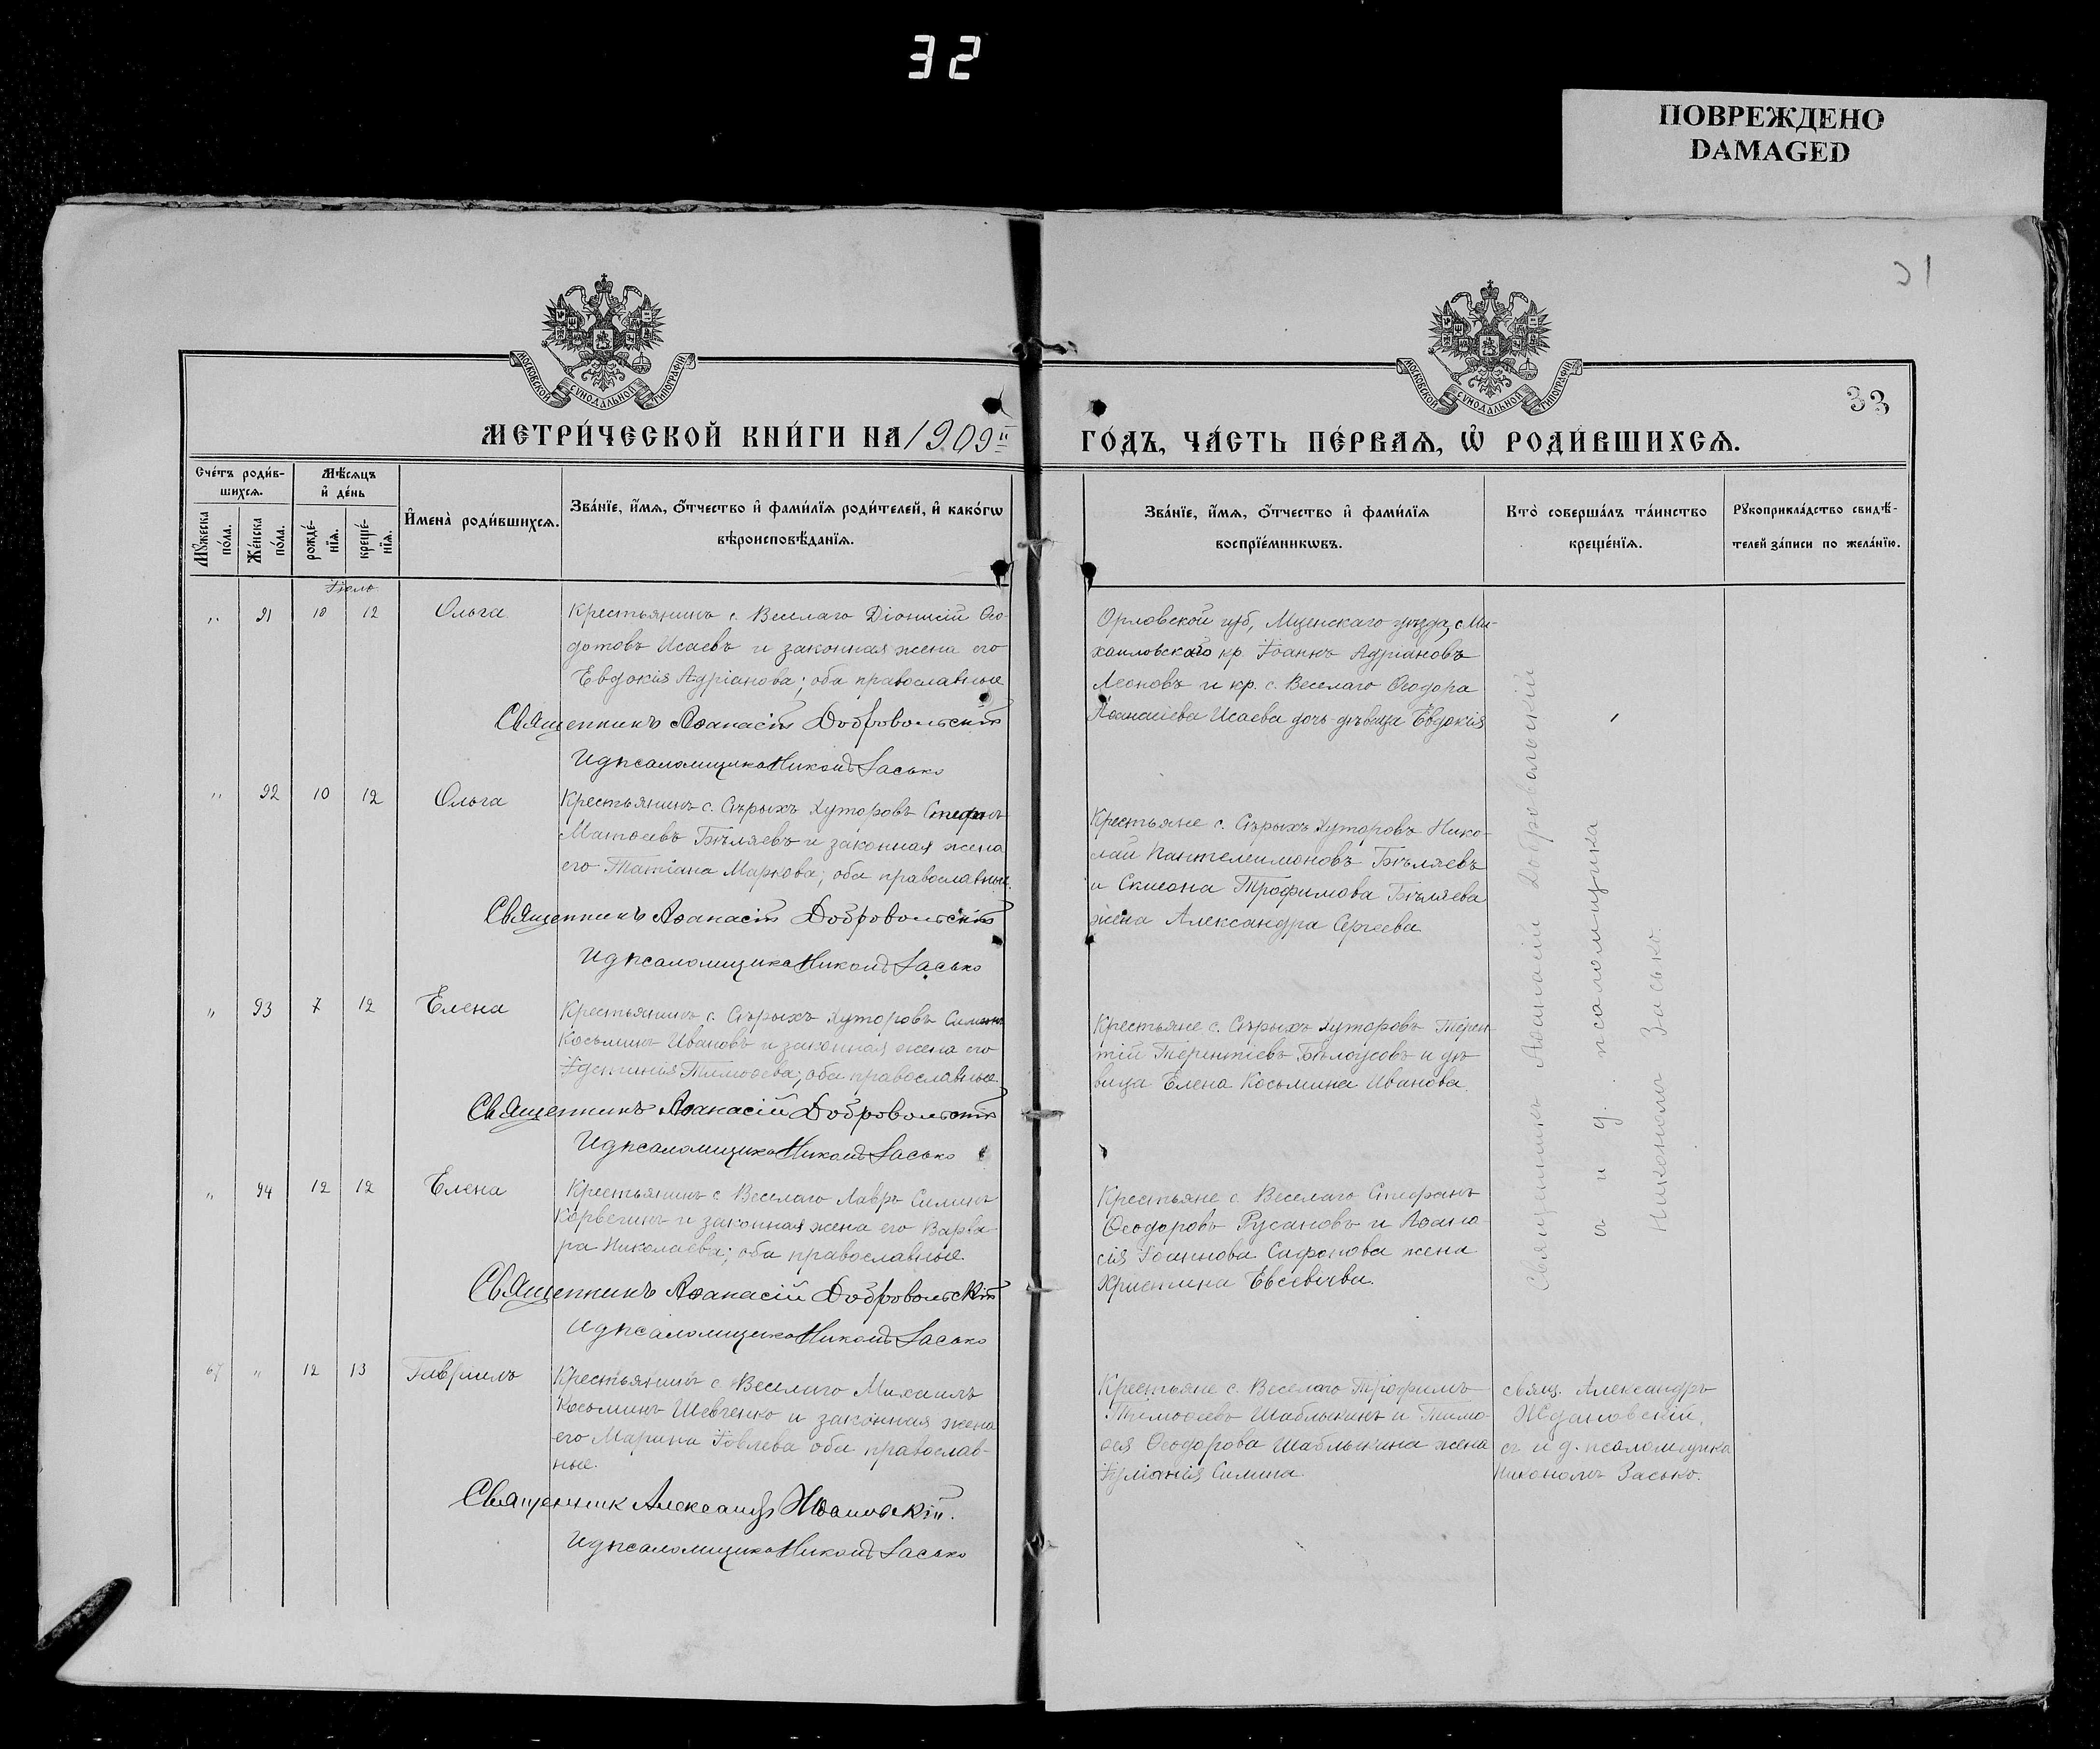 32
ПОВРЕЖДЕНО
DAMAGED
31
33
МОСКОВСКОЙ СѴНОДАЛЬНОЙ ТИПОГРАФІИ
МОСКОВСКОЙ СѴНОДАЛЬНОЙ ТИПОГРАФІИ
МЕТРИ́ЧЕСКОЙ КНИ́ГИ НА 1909й
ГО́ДЪ, ЧА́СТЬ ПЕ́РВАѦ, Ѡ҆ РОДИ́ВШИХСѦ.
Сче́тъ роди́в-
шихсѧ.
Мѣ́сѧцъ
и҆ де́нь
Мꙋ́жеска
по́ла.
Же́нска
по́ла.
рожде́-
нїѧ.
креще́-
нїѧ.
И҆мена̀ роди́вшихсѧ.
Зва́нїе, и҆́мѧ, ѻ҆́тчество и҆ фами́лїѧ роди́телей, и҆ како́гѡ
вѣроисповѣ́данїѧ.
Зва́нїе, и҆́мѧ, ѻ҆́тчество и҆ фами́лїѧ
воспрїе́мникѡвъ.
Кто̀ соверша́лъ та́инство
креще́нїѧ.
Рꙋкоприкла́дство свидѣ́-
телей за́писи по жела́нїю.
Іюль
„ 91 10 12 Ольга
Крестьянинъ с. Веселаго Діонисій Ѳео-
дотовъ Исаевъ и законная жена его
Евдокія Адріанова; оба православные
Священникъ Аѳанасій Добровольскій
И д псаломщика Никонъ Засько
Орловской губ, Мценскаго уѣзда, с Ми-
хаиловскаго кр. Іоаннъ Адріановъ
Леоновъ и кр. с. Веселаго Ѳеодора
Аѳанасіева Исаева дочь дѣвица Евдокія
„ 92 10 12 Ольга
Крестьянинъ с. Сѣрыхъ Хуторовъ Стефанъ
Матѳеевъ Бѣляевъ и законная жена
его Татіана Маркова; оба православные.
Священникъ Аѳанасій Добровольскій
И д псаломщика Никонъ Засько
Крестьяне с. Сѣрыхъ Хуторовъ Нико-
лай Пантелеимоновъ Бѣляевъ
и Симеона Трофимова Бѣляева
жена Александра Сергеева
„ 93 7 12 Елена
Крестьянинъ с. Сѣрыхъ Хуторовъ
Косьминъ Ивановъ и законная жена его
Іустинія Тимоѳева; оба православные.
Священникъ Аѳанасій Добровольскій
И д псаломщика Никонъ Засько
Крестьяне с. Сѣрыхъ Хуторовъ Терен-
тій Терентіевъ Бѣлоусовъ и дѣ-
вица Елена Косьмина Иванова.
„ 94 12 12 Елена
Крестьянинъ с Веселаго Лавръ Силинъ
Корвегинъ и законная жена его Варва-
ра Николаева; оба православные.
Священникъ Аѳанасій Добровольскій
И д псаломщика Никонъ Засько
Крестьяне с. Веселаго Стефанъ
Ѳеодоровъ Русановъ и Аѳана-
сія Іоаннова Сафонова жена
Христина Евсевіева.
Священникъ Аѳанасій Добровольскій
съ и д. псаломщика
Никономъ Засько.
67 „ 12 13 Гавріилъ
Крестьянинъ с. Веселаго Михаилъ
Косьминъ Шевченко и законная жена
его Марина Іовлева оба православ-
ные.
Священник Александръ Ждановскій.
И д псаломщика Никонъ Засько
Крестьяне с. Веселаго Трофимъ
Тимоѳеевъ Шаблыкинъ и Тимо-
ѳея Ѳеодорова Шаблыкина жена
Іуліанія Силина
свящ. Александръ
Ждановскій,
съ и д. псаломщика
Никономъ Засько.